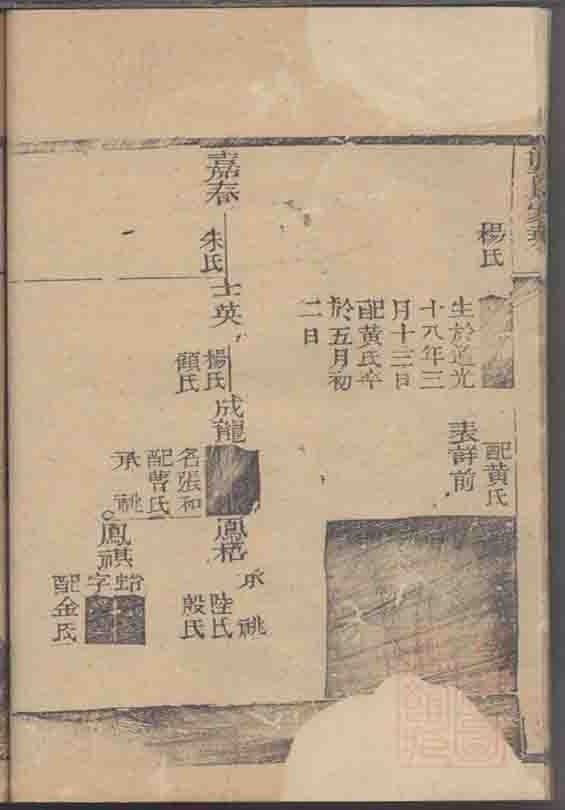 楊氏
生於道光
十八年三
月十三日
配黃氏卒
於五月初
二日
配黃氏
表詳前
嘉春
朱氏
士英
楊氏
顧氏
成龍
名張和
配曹氏
承祧
鳳梧
承祧
陸氏
殷氏
鳳祺
字
配金氏